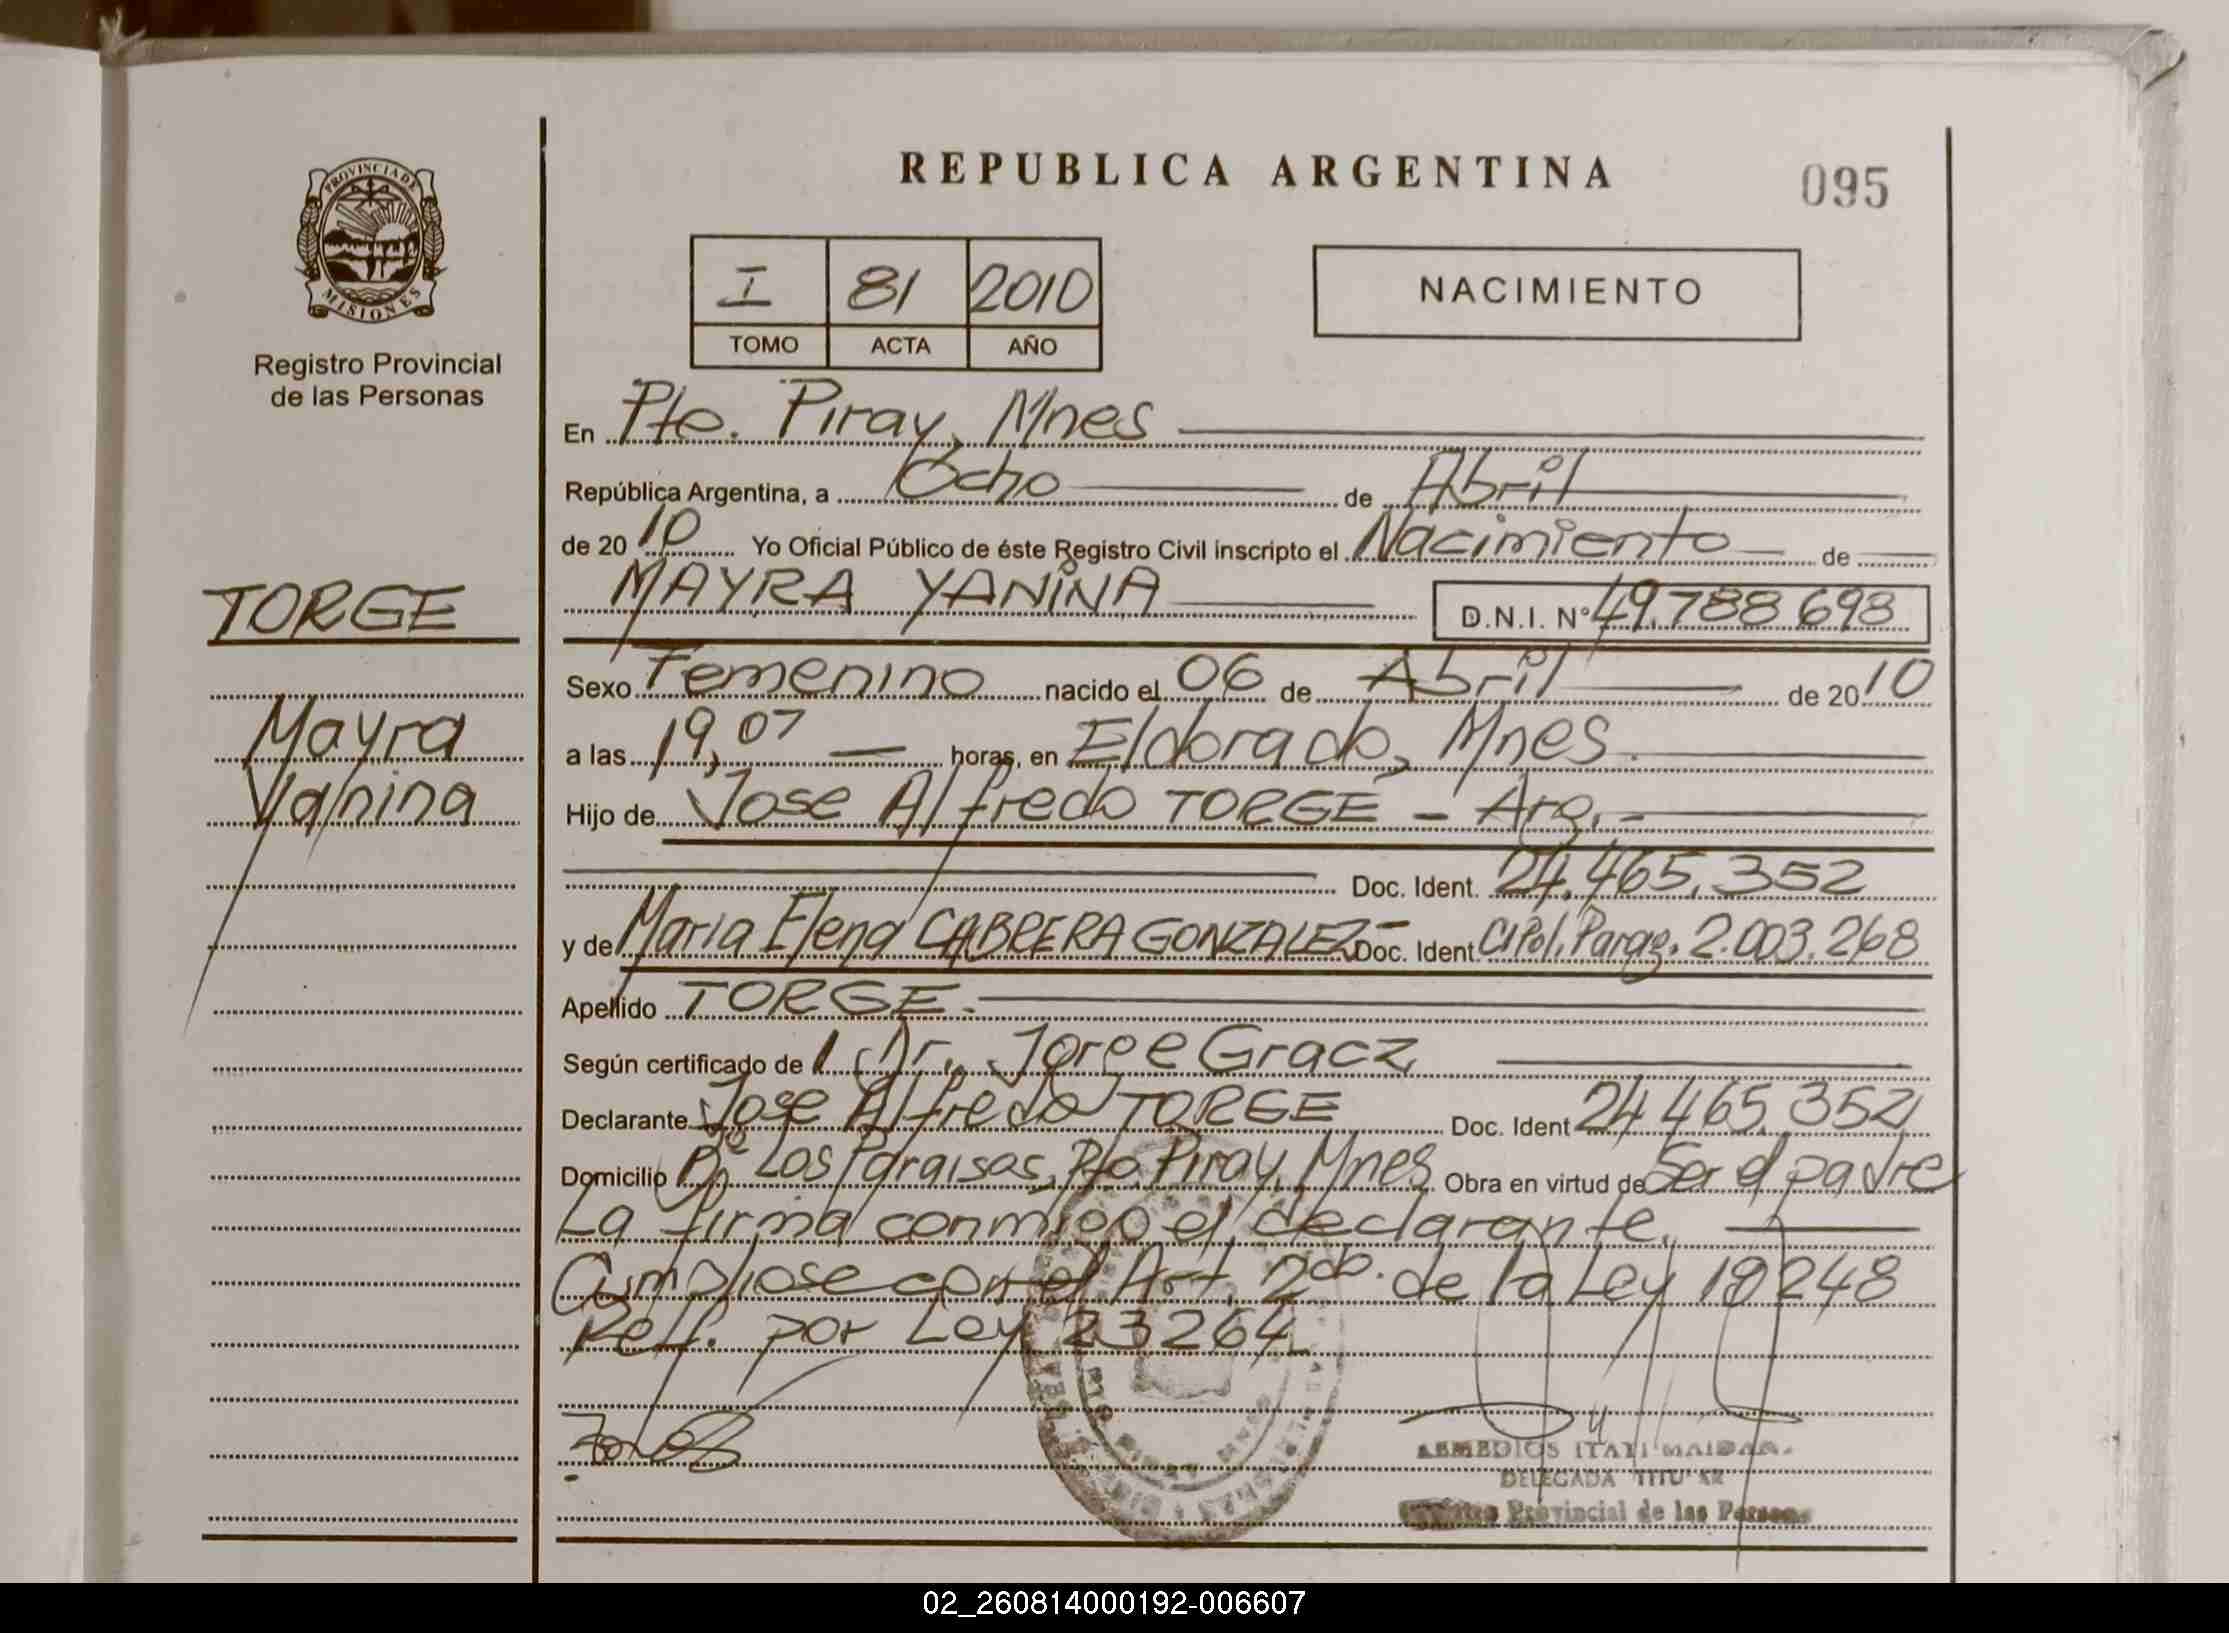 REPUBLICA ARGENTINA
095
PROVINCIA DE
MISIONES
Registro Provincial
de las Personas
I 81 2010
TOMO ACTA AÑO
NACIMIENTO
En Pto. Piray, Mnes
República Argentina, a Ocho de Abril
de 2010 Yo Oficial Público de éste Registro Civil inscripto el Nacimiento de
MAYRA YANINA D.N.I. Nº 49.788698
TORGE
Mayra
Yanina
Sexo Femenino nacido el 06 de Abril de 2010
a las 19,07 horas, en Eldorado, Mnes.
Hijo de Jose Alfredo TORGE - Arg. -
Doc. Ident. 24.465.352
y de Maria Elena CABRERA GONZALEZ - Doc. Ident. CI Pol. Parag. 2.003.268
Apellido TORGE.
Según certificado de l Dr. Jorge Gracz
Declarante Jose Alfredo TORGE Doc. Ident 24465.352
Domicilio Bº Los Paraisos, Pto. Piray, Mnes Obra en virtud de Ser el padre
La firma conmigo el declarante.
Cumpliose con el Art. 2do. de la Ley 18248
Ref. por Ley 23264
ITATI MAIDAN
DELEGADA TITULAR
Registro Provincial de las Personas
02_260814000192-006607